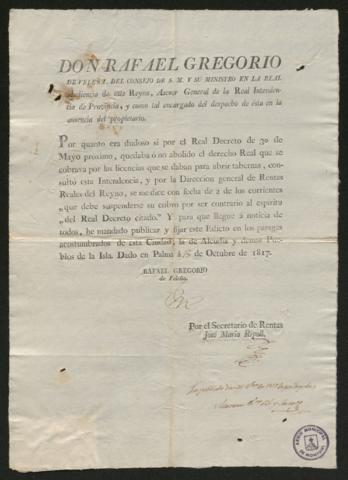 DON RAFAEL GREGORIO
DE VELESA, DEL CONSEJO DE S. M. Y SU MINISTRO EN LA REAL
Audiencia de este Reyno, Asesor General de la Real Intenden-
cia de Provincia, y como tal encargado del despacho de ésta en la
ausencia del propietario.
Por quanto era dudoso si por el Real Decreto de 30 de
Mayo próximo, quedaba ó no abolido el derecho Real que se
cobrava por las licencias que se daban para abrir tabernas, con-
sultó esta Intendencia, y por la Direccion general de Rentas
Reales del Reyno, se me dice con fecha de 2 de los corrientes
„que debe suspenderse su cobro por ser contrario al espíritu
„del Real Decreto citado.” Y para que llegue á noticia de
todos, he mandado publicar y fijar este Edicto en los parages
acostumbrados de esta Ciudad, la de Alcudia y demas Pue-
blos de la Isla. Dado en Palma á 15 de Octubre de 1817.
RAFAEL GREGORIO
de Velesa.
Por el Secretario de Rentas
José María Ripoll.